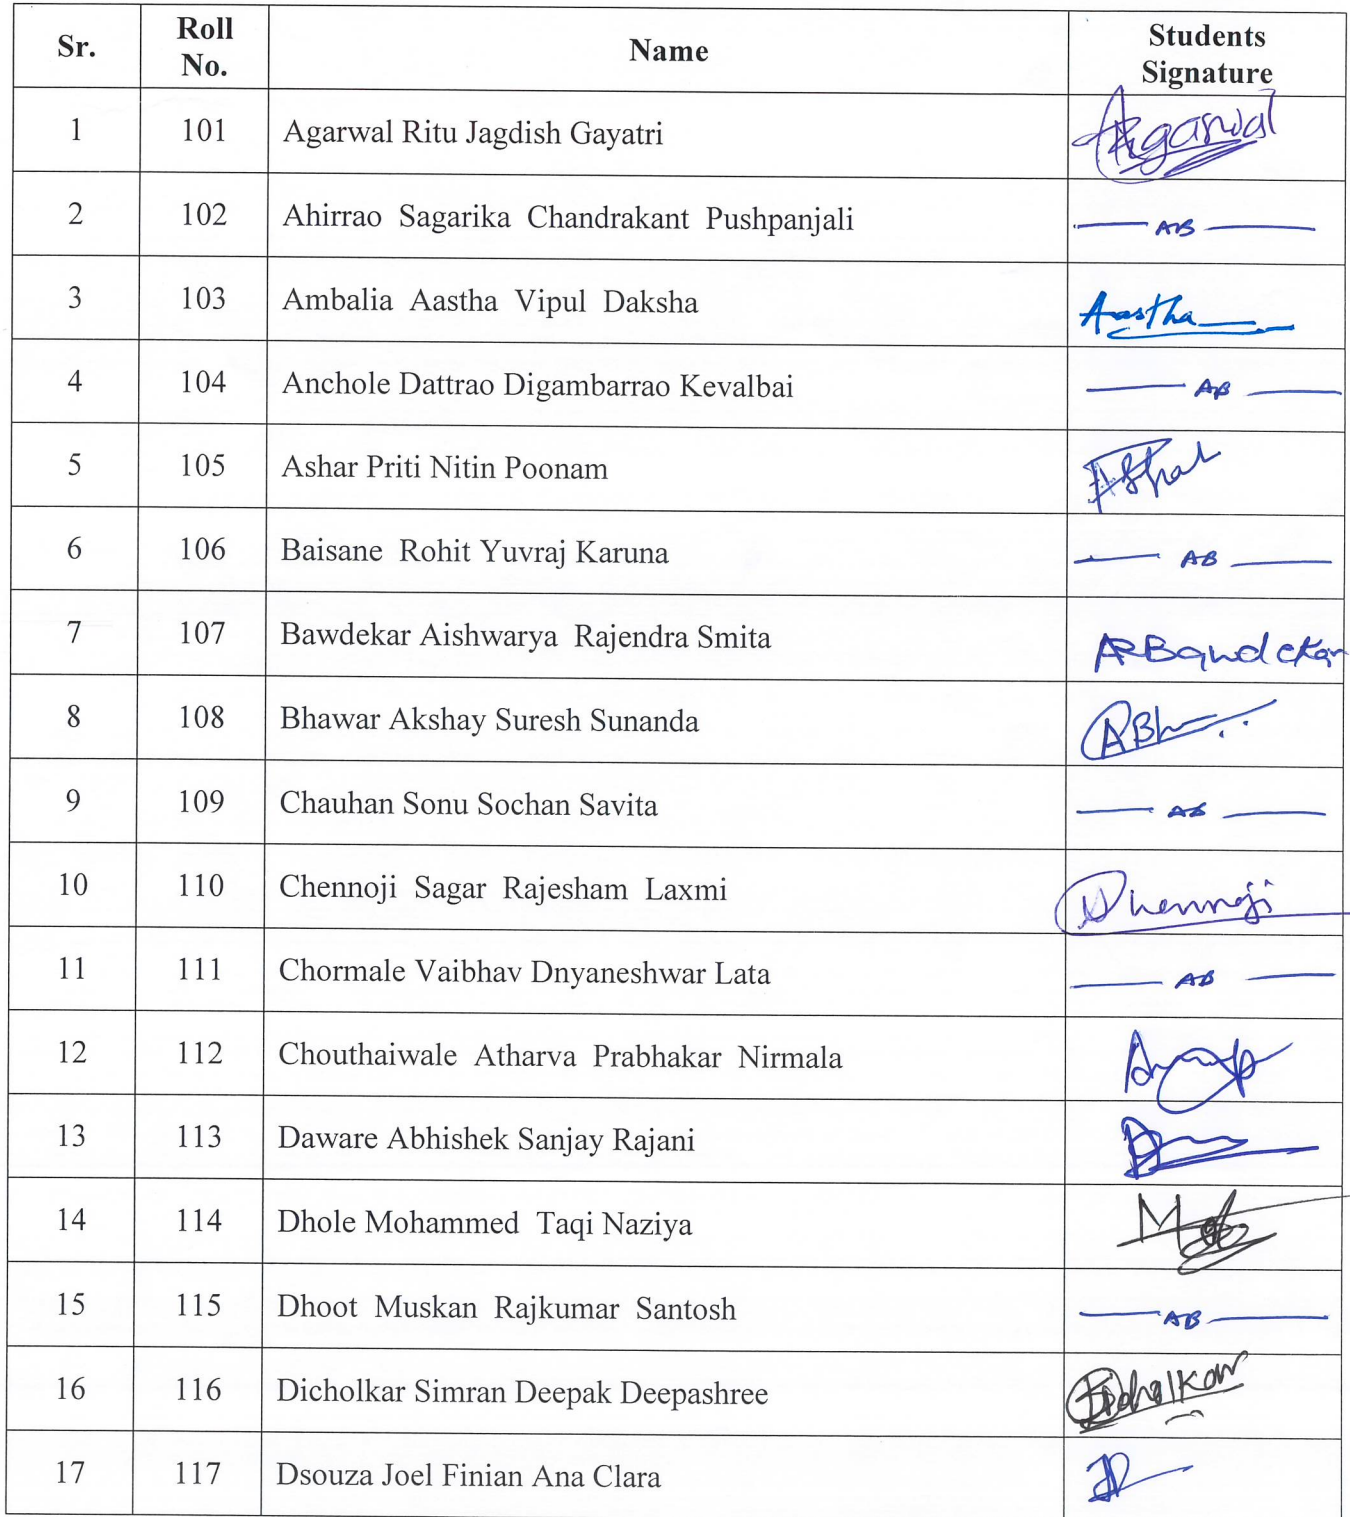 Sr. Roll No. Name Students Signature
1 101 Agarwal Ritu Jagdish Gayatri Agarwal
2 102 Ahirrao Sagarika Chandrakant Pushpanjali AB
3 103 Ambalia Aastha Vipul Daksha Aastha
4 104 Anchole Dattrao Digambarrao Kevalbai AB
5 105 Ashar Priti Nitin Poonam
6 106 Baisane Rohit Yuvraj Karuna AB
7 107 Bawdekar Aishwarya Rajendra Smita ARBawdekar
8 108 Bhawar Akshay Suresh Sunanda
9 109 Chauhan Sonu Sochan Savita AB
10 110 Chennoji Sagar Rajesham Laxmi
11 111 Chormale Vaibhav Dnyaneshwar Lata AB
12 112 Chouthaiwale Atharva Prabhakar Nirmala
13 113 Daware Abhishek Sanjay Rajani
14 114 Dhole Mohammed Taqi Naziya
15 115 Dhoot Muskan Rajkumar Santosh AB
16 116 Dicholkar Simran Deepak Deepashree
17 117 Dsouza Joel Finian Ana Clara